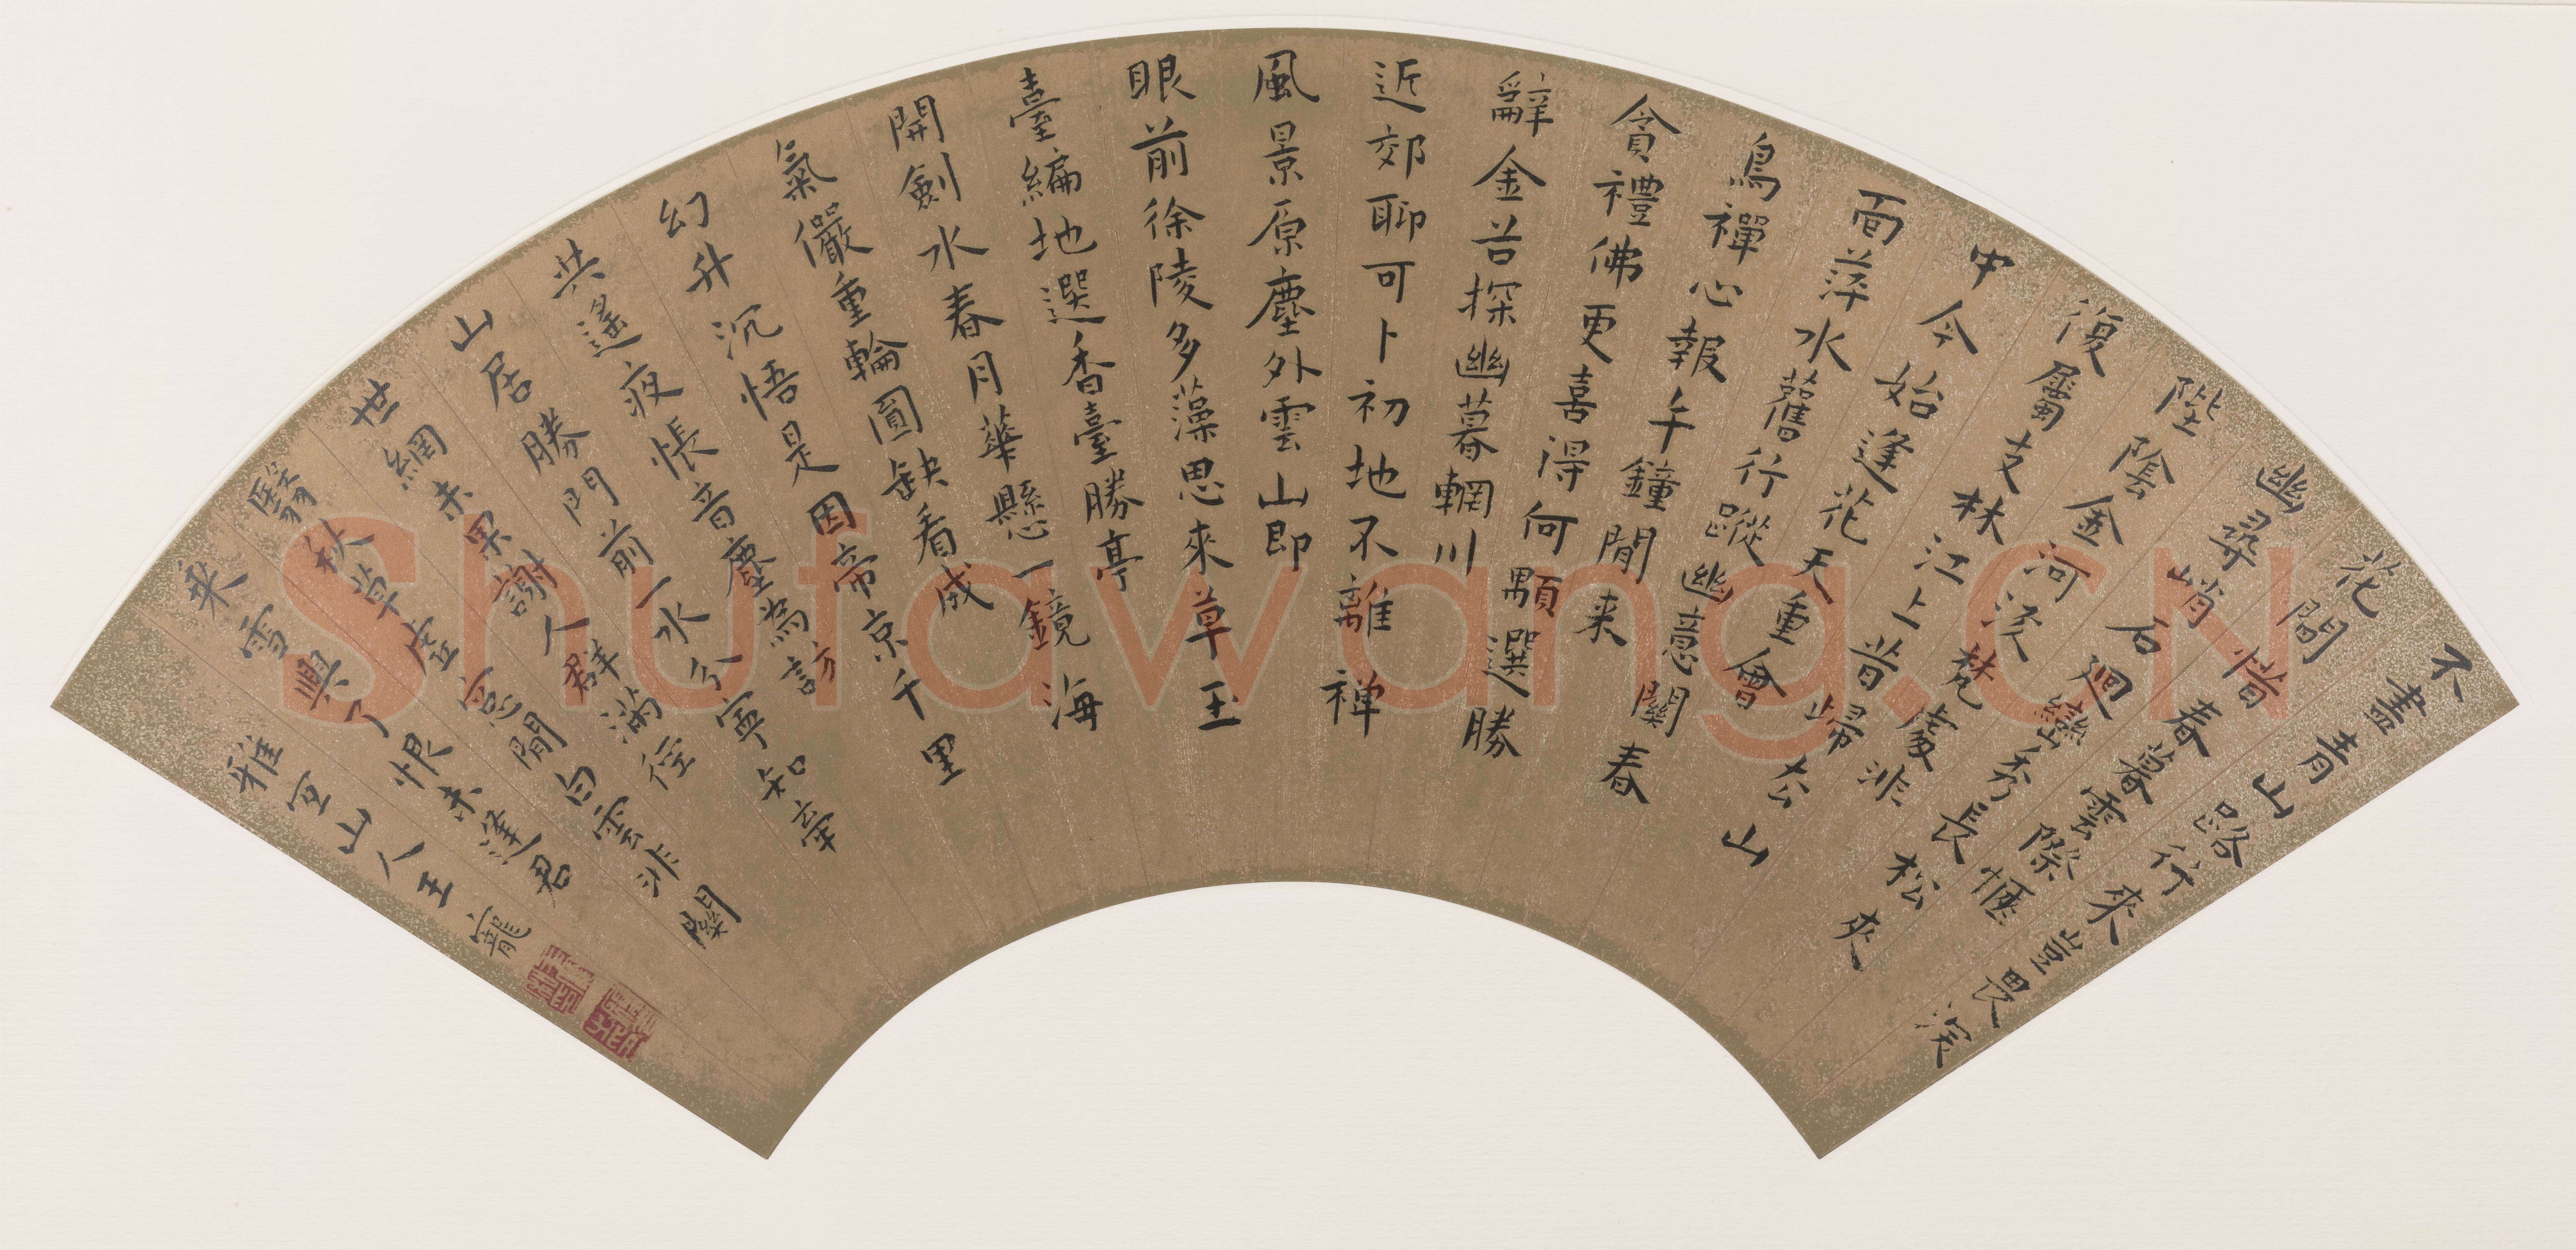 不盡青山路行來豈畏深
花間惜春暮雲際愜
幽尋峭石廻巒秀長松夾
陛陰金河流梵處非
復屬支林江上昔歸去山
中今始逢花天重會
面萍水舊行蹤幽意關春
鳥禪心報午鐘閒来
貪禮佛更喜得何顒選勝
辭金谷探幽暮輞川
近郊聊可卜初地不離禅
風景原塵外雲山即
眼前徐陵多藻思來草玉
臺編地選香臺勝亭
開劍水春月華懸一鏡海
氣儼重輪圓缺看成
幻升沉悟是因帝京千里
共遙夜悵音塵為訪
山居勝門前一水分寧知辜
世網未果謝人群滿徑
翳秋草虛窓閒白雲非關
乘雪興了恨未逢君
雅宜山人王寵
Shufawang.CN